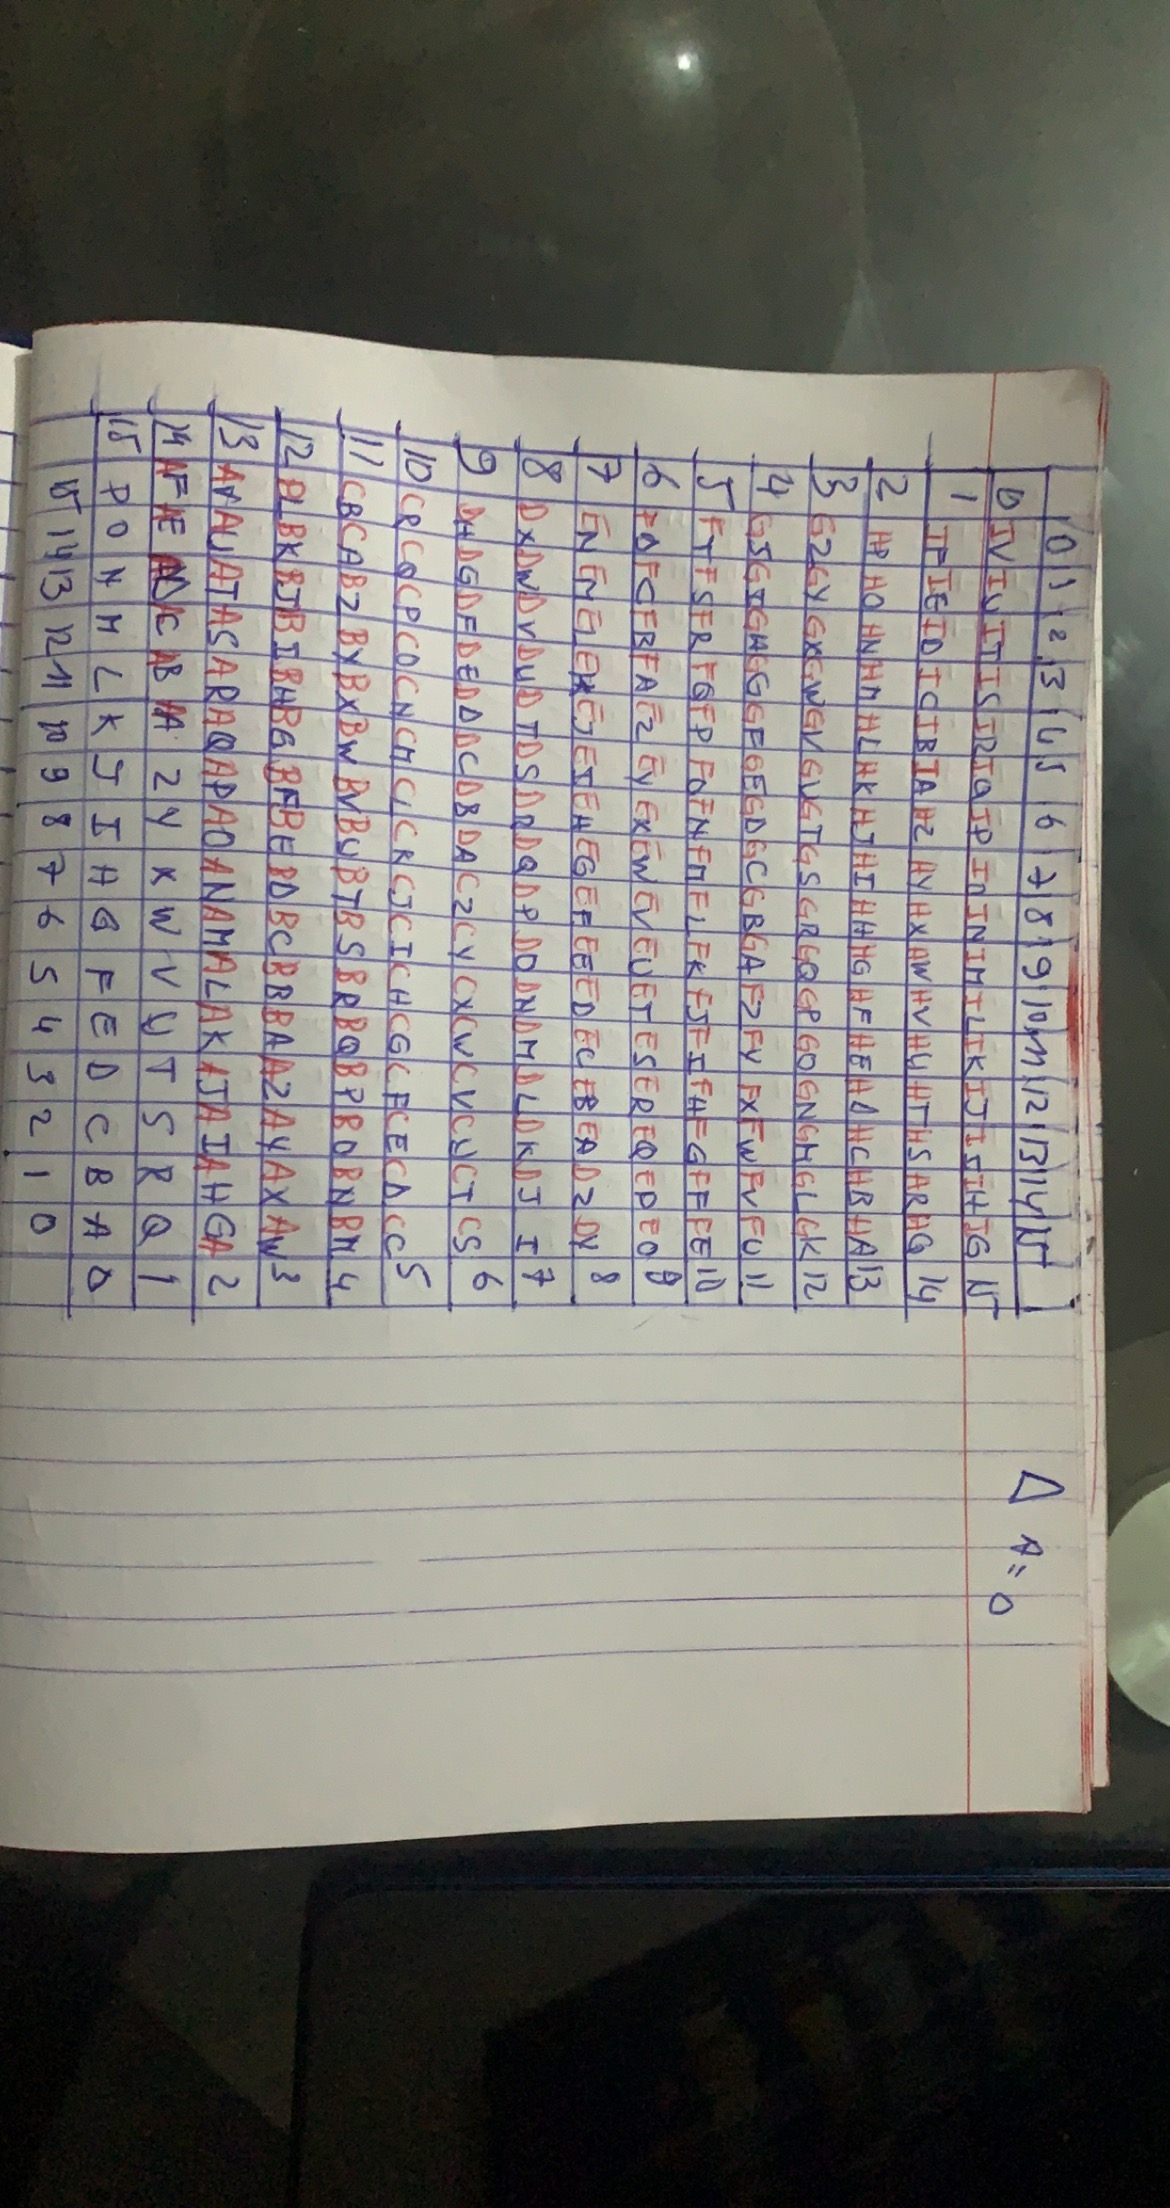 0 1 2 3 4 5 6 7 8 9 10 11 12 13 14 15
0 IV IU IT IS IR IQ IP IO IN IM IL IK IJ II IH IG 15
1 IF IE ID IC IB IA HZ HY HX HW HV HU HT HS HR HQ 14
2 HP HO HN HM HL HK HJ HI HH HG HF HE HD HC HB HA 13
3 GZ GY GX GW GV GU GT GS GR GQ GP GO GN GM GL GK 12
4 GJ GI GH GG GF GE GD GC GB GA FZ FY FX FW FV FU 11
5 FT FS FR FQ FP FO FN FM FL FK FJ FI FH FG FF FE 10
6 FD FC FB FA EZ EY EX EW EV EU ET ES ER EQ EP EO 9
7 EN EM EL EK EJ EI EH EG EF EE ED EC EB EA DZ DY 8
8 DX DW DV DU DT DS DR DQ DP DO DN DM DL DK DJ I 7
9 DH DG DF DE DD DC DB DA CZ CY CX CW CV CU CT CS 6
10 CR CQ CP CO CN CM CL CK CJ CI CH CG CF CE CD CC 5
11 CB CA BZ BY BX BW BV BU BT BS BR BQ BP BO BN BM 4
12 BL BK BJ BI BH BG BF BE BD BC BB BA AZ AY AX AW 3
13 AV AU AT AS AR AQ AP AO AN AM AL AK AJ AI AH GA 2
14 AF AE AD AC AB AA Z Y X W V U T S R Q 1
15 P O N M L K J I H G F E D C B A 0
15 14 13 12 11 10 9 8 7 6 5 4 3 2 1 0
Δ A = 0